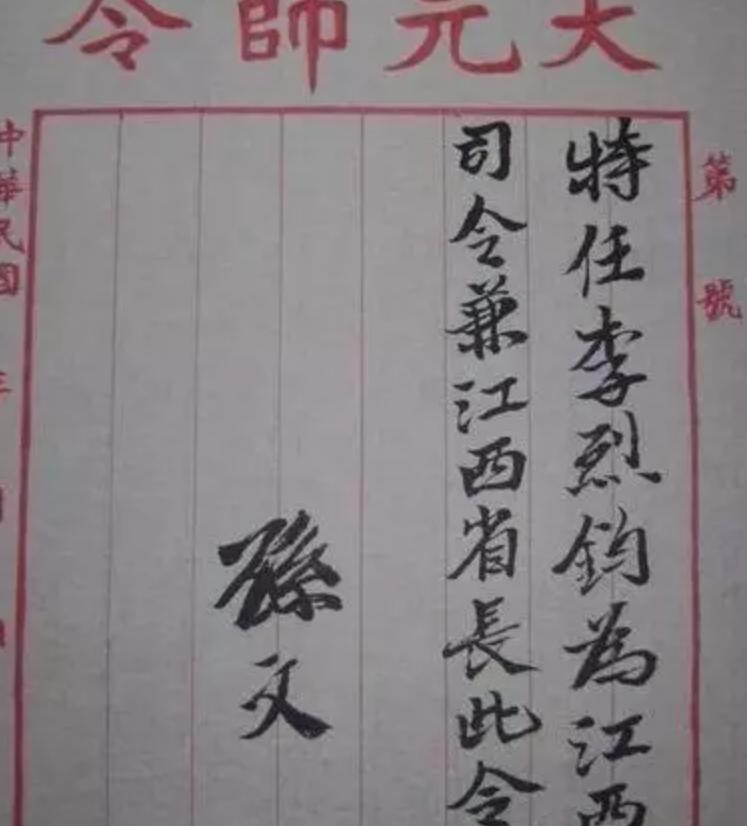 大元帥令
第 號
特任李烈鈞為江西
司令兼江西省長此令
孫文
中華民國 年 月 日